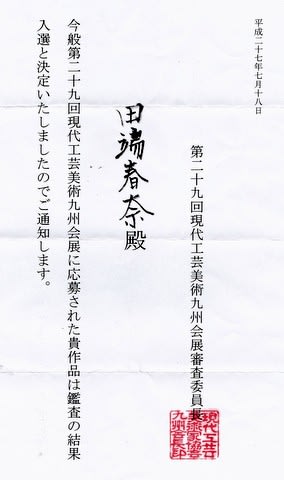 平成二十七年七月十八日
第二十九回現代工芸美術九州会展審査委員長
田端春奈殿
今般第二十九回現代工芸美術九州会展に応募された貴作品は鑑査の結果
入選と決定いたしましたのでご通知します。